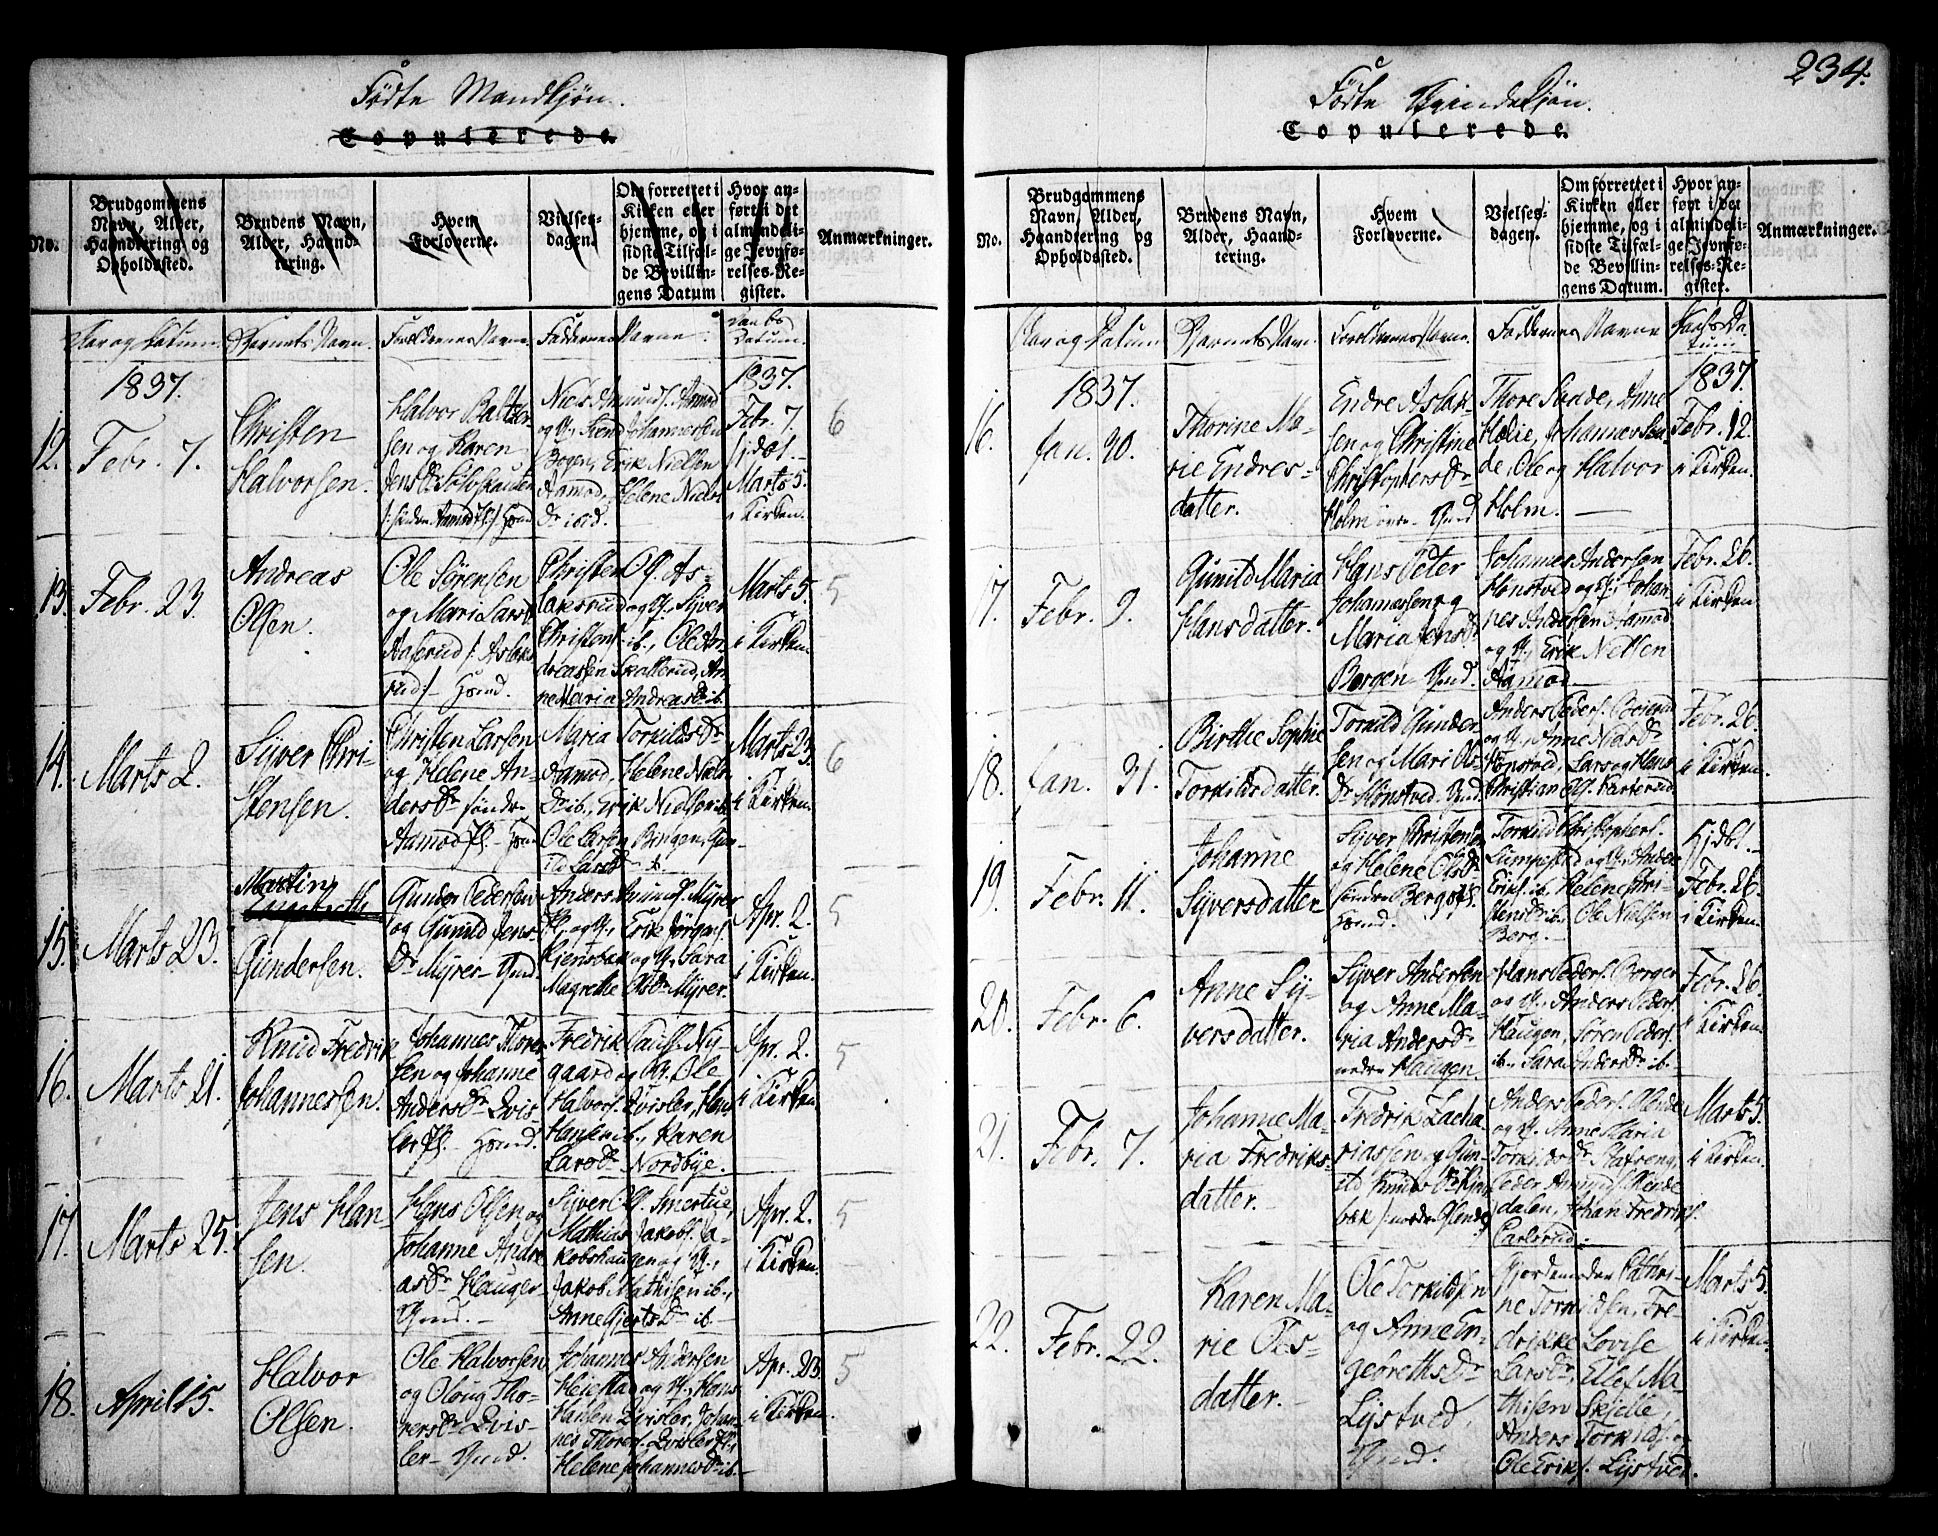 Fødte Mandkjøn.
Copulerede.
No.
Brudgommens
Navn, Alder,
Haandtering og
Opholdssted.
Brudens Navn,
Alder, Haand-
tering.
Hvem
Forloverne.
Vielses-
dagen.
Om forrettet i
Kirken eller
hjemme, og i
sidste Tilfæl-
de Bevillin-
gens Datum
Hvor an-
ført i det
almindeli-
ge Jevnfø-
relses-Re-
gister.
Anmærkninger.
Aar og Datum.
Barnets Navn.
Forældrenes Navne.
Faddernes Navne.
Daabs
Datum.
1837.
1837.
12.
Febr. 7.
Christen
Halvorsen.
Halvor Baltzer-
sen og Karen
Jensdr
Niels Amunds. Aamod
og Svend Johannessen
Bogen, Erik Nielsen
Aamod, Helene Niels
Dr ibid.
Febr. 7
hjdbt.
Marts 5.
i Kirken.
6
13.
Febr. 23.
Andreas
Olsen.
Ole Sörensen
og Mari Larsd.
Christen Ol. As-
laksrud og H. Siver
Christens. ib., Ole An-
dreassen Skallerud, An-
ne Maria Andreasdr ib.
Marts 5.
i Kirken.
5
14.
Marts 2.
Siver Chri-
stensen.
Christen Larsen
og Helene An-
dersdr søndre
Aamod
Maria Torkildsdr
Aamod, Helene Niels
Dr ib., Erik Nielsen ib.
Ole Larsen Bingen, Gun-
ild Larsdr ib.
Marts 23.
i Kirken.
6
15.
Marts 23.
Martin
Gundersen.
Gunder Pedersen
og Gunild Jens-
Dr Myrer
Anders Amunds. Myrer
og H., Erik Jörgens.
og H. Sara
Magrethe Olsdr Myrer.
Apr. 2.
i Kirken.
5
16.
Marts 21.
Knud Fredrik
Johannessen.
Johannes Thores-
sen og Johanne
Andersdr Qvis-
ler
Fredrik Pauls. Ny-
gaard og H. Ole
Halvors. Qvisler, Hans
Hansen ib., Karen
Larsdr Nordbye.
Apr. 2.
i Kirken.
5
17.
Marts 25.
Jens Han-
sen.
Hans Olsen og
Johanne Andre-
asdr Hauger
Siver Ol. Smertue,
Mathias Jakobs. Ja-
kobshaugen og H.,
Jakob Mathisen ib.,
Anne Gjertsdr ib.
Apr. 2.
i Kirken.
5
18.
April 15.
Halvor
Olsen.
Ole Halvorsen
og Oloug Tho-
resdr Qvis-
ler
Johannes Andersen
Heiestad og H., Hans
Hansen Qvisler, Johan-
nes Thores. Qvisler,
Helene Johannesdr ib.
Apr. 23.
i Kirken.
5
234.
Fødte Qvindekjøn.
Copulerede.
No.
Brudgommens
Navn, Alder,
Haandtering og
Opholdssted.
Brudens Navn,
Alder, Haand-
tering.
Hvem
Forloverne.
Vielses-
dagen.
Om forrettet i
Kirken eller
hjemme, og i
sidste Tilfæl-
de Bevillin-
gens Datum.
Hvor an-
ført i det
almindeli-
ge Jevnfø-
relses-Re-
gister.
Anmærkninger.
Aar og Datum
Barnets Navn.
Forældrenes Navne.
Faddernes Navne
Daabs Da-
tum
1837.
1837.
16.
Jan. 30.
Thorine Ma-
rie Endres-
datter.
Endre Aslak-
sen og Christine
Christophersdr
Holm
Thore Sunde, Anne
Hælie, Johannes Sun-
de, Ole og Halvor
Holm.
Febr. 12.
i Kirken.
17.
Febr. 9.
Gunild Maria
Hansdatter.
Hans Peter
Johannessen og
Maria Jensdr
Borgen
Johannes Andersen
Hönstved og H., Johan-
nes Andersen Aamod
og H., Erik Nielsen
Aamod
Febr. 26.
i Kirken
18.
Jan. 31.
Birthe Sophie
Torkildsdatter.
Torkild Gunder-
sen og Mari Ols-
Dr Hönstved
Anders Peders.
og H., Anne Nilsdr
Hönstved, Lars og Hans
Christian Ols.
Febr. 26.
i Kirken.
19.
Febr. 11.
Johanne
Siversdatter
Siver Christensen
og Helene Olsdr
søndre Berg
Torkild Christophers.
og H., Anders
Eriks. ib. Helene Chri-
stensdr ib., Ole Nielsen
Berg.
Hjdbt.
Febr. 26.
i Kirken.
20.
Febr. 6.
Anne Si-
versdatter.
Siver Andersen
og Anne Ma-
ria Andersdr
nedre Haugen.
Hans Peders. Borger
og H., Anders Peders.
Haugen, Sören Peders.
ib., Sara Andersdr ib.
Febr. 26.
i Kirken.
21.
Febr. 7.
Johanne Ma-
ria Fredriks-
datter.
Fredrik Zacha-
riassen og Gun-
ild Knudsdr
Anders Peders.
og H. Anne Maria
Torkildsdr
Peder Amunds.
dalen, Johan Fredriks.
Carlsrud.
Marts 5.
i Kirken.
22.
Febr. 22.
Karen Ma-
rie Ols-
datter.
Ole Torkildsen
og Anne In-
gebrethsdr
Lystved,
Gjordemoder Cathri-
ne Torkildsen, Fre-
drikke Lovise
Larsdr, Ellef Ma-
thisen Skjelle,
Anders Torkilds. og
Ole Eriks. Lystved.
Marts 5.
i Kirken.